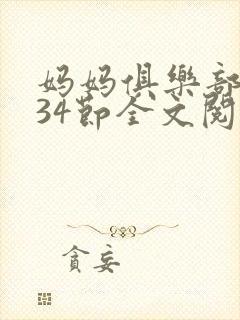 妈妈俱樂部
34節全文閱
貪妄